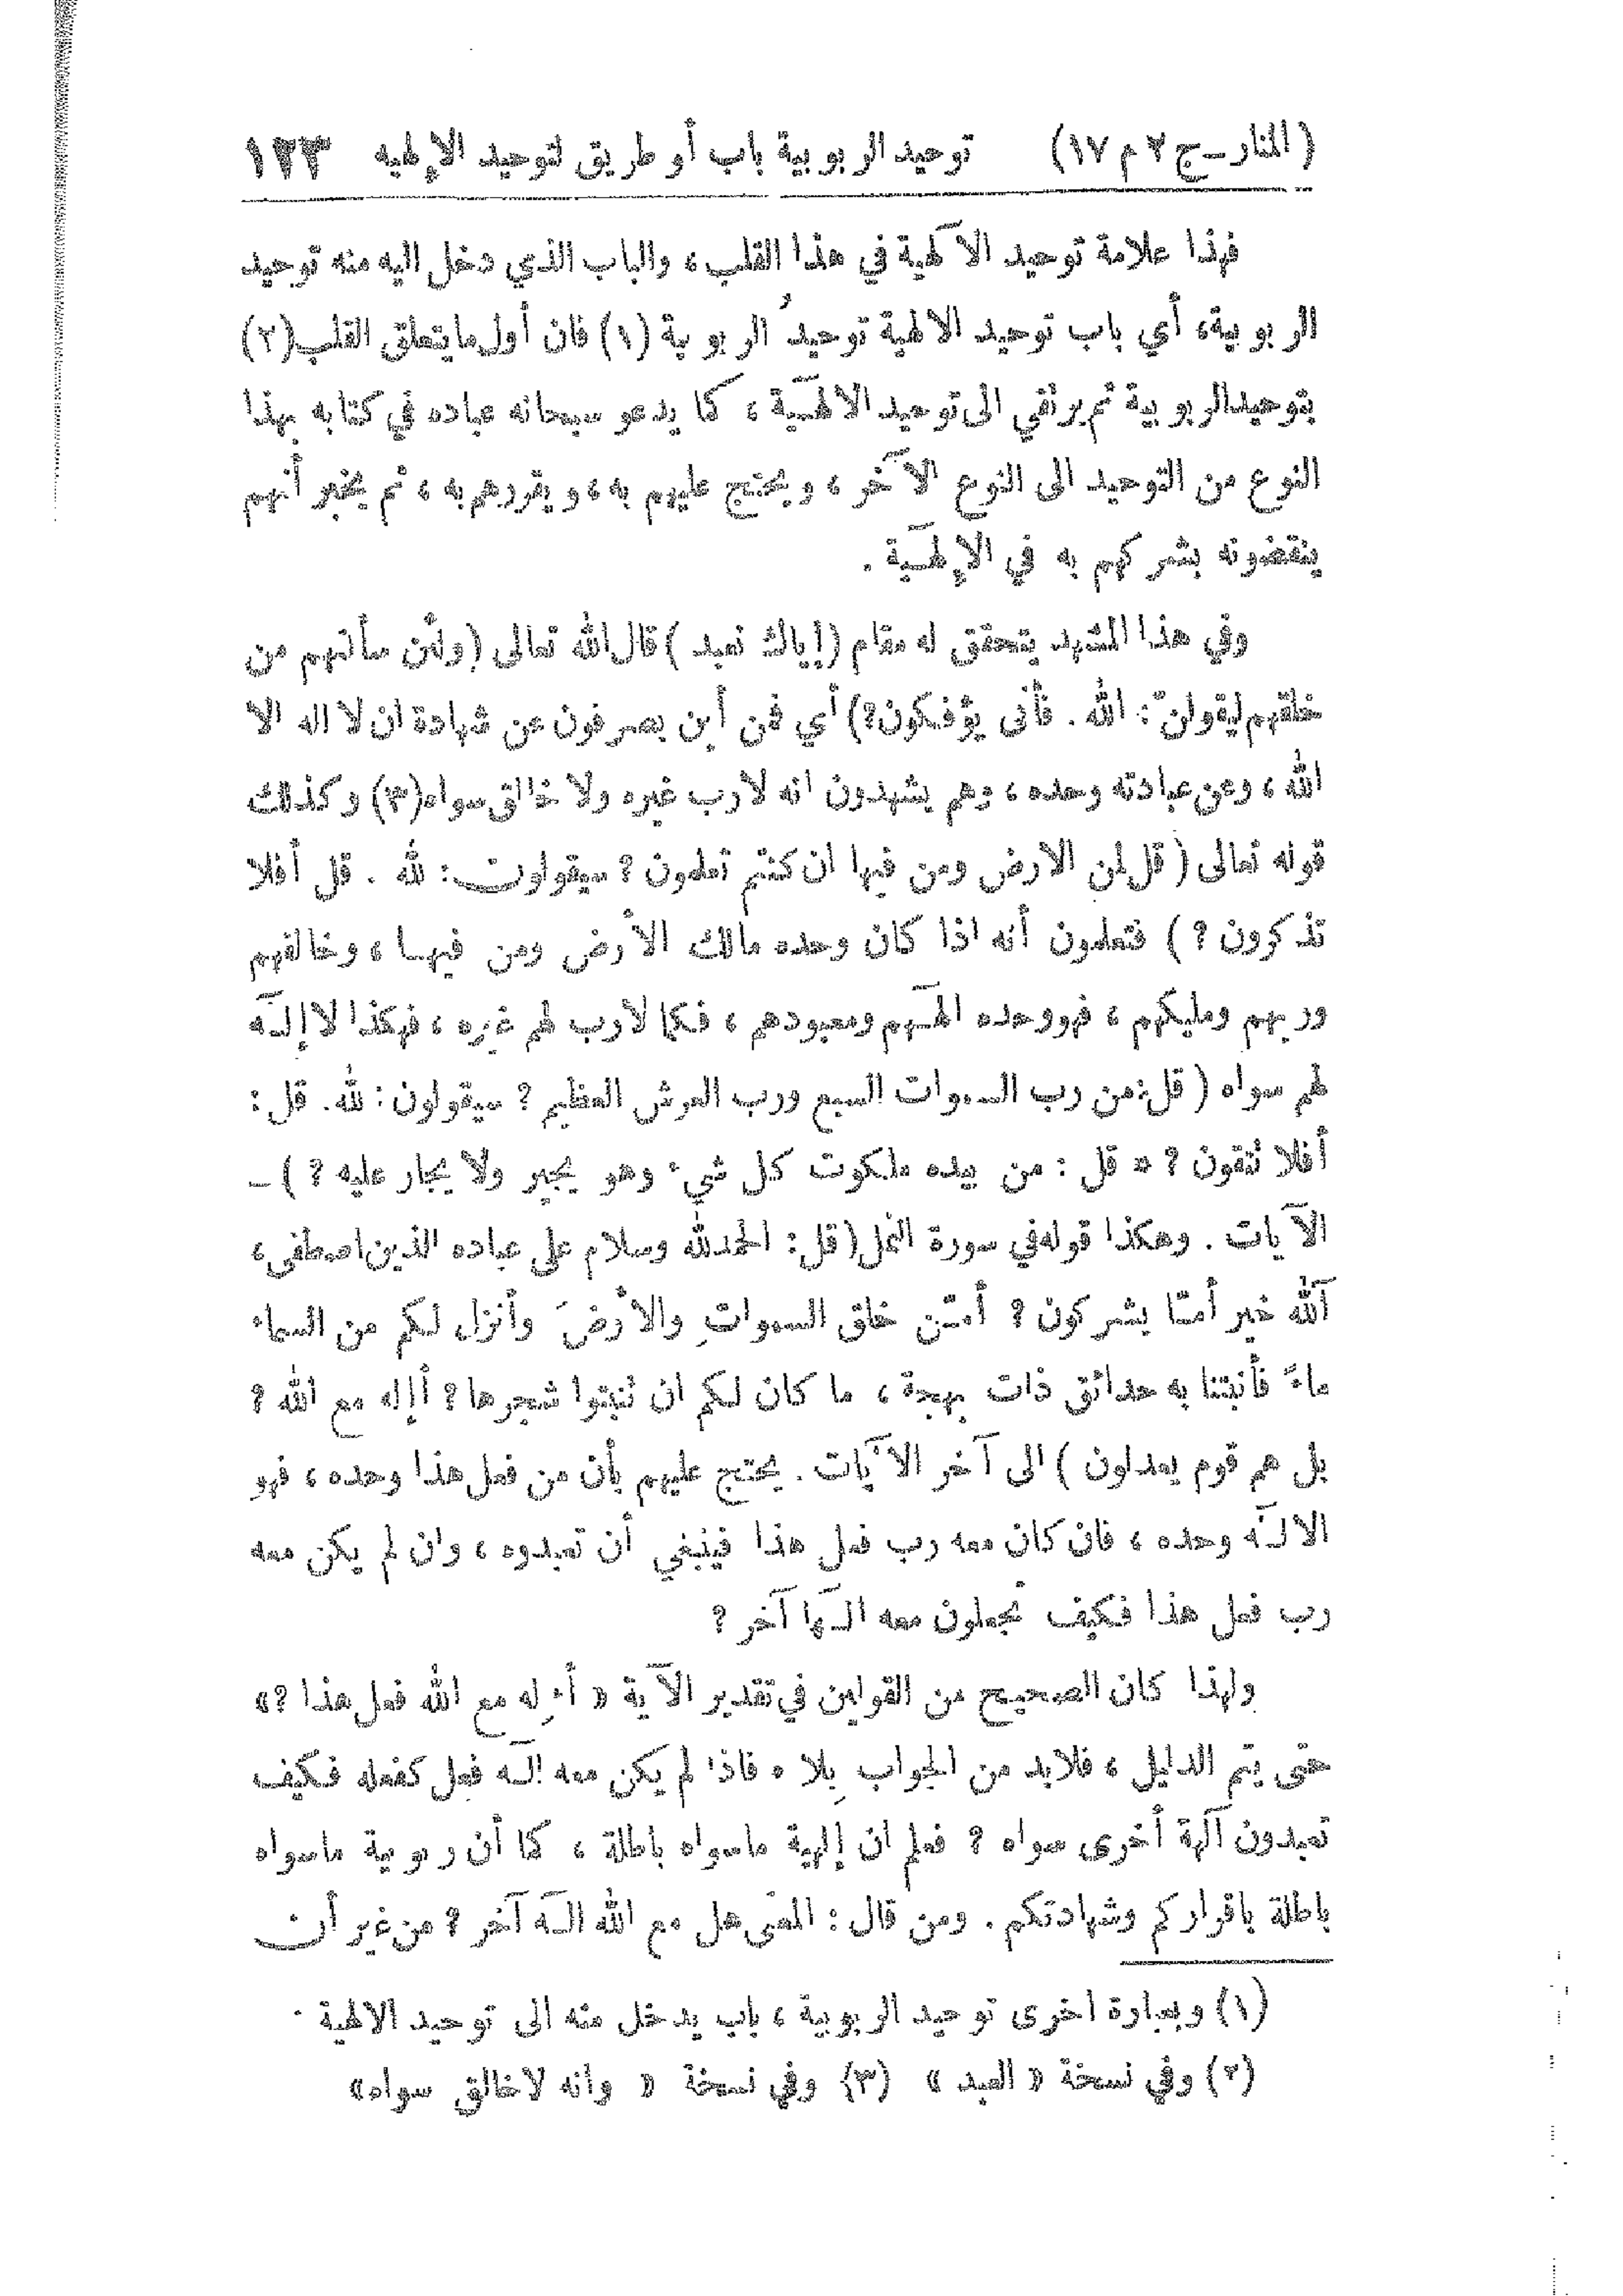 (المنار ــ ج ٢ م ١٧) توحيد الربوبية باب أو طريق لتوحيد الإلهيه ١٢٣
فهذا علامة توحيد الآلهية في هذا القلب، والباب الذي دخل اليه منه توحيد
الربوبية، أي باب توحيد الالهية توحيدُ الربوبية (١) فان أول ما يتعلق القلب (٢)
بتوحيد الربوبية ثم يرتقي الى توحيد الالهٓية، كما يدعو سبحانه عباده في كتابه بهذا
النوع من التوحيد الى النوع الآخر، ويحتج عليهم به، ويقررهم به، ثم يخبر أنهم
ينقضونه بشركهم به في الإلهٓية.
وفي هذا المشهد يتحقق له مقام (إياك نعبد) قال الله تعالى (ولئن سألتهم من
خلقهم ليقولنّ: الله. فأنى يؤفكون؟) أي فمن أين يصرفون عن شهادة ان لا اله الا
الله، وعن عبادته وحده، وهم يشهدون انه لا رب غيره ولا خالق سواه (٣) وكذلك
قوله تعالى (قل لمن الارض ومن فيها ان كنتم تعلمون؟ سيقولون: لله. قل أفلا
تذكرون؟) فتعلمون أنه اذا كان وحده مالك الأرض ومن فيها، وخالقهم
وربهم ومليكهم، فهو وحده الهٓهم ومعبودهم، فكما لا رب لهم غيره، فهكذا لا إلٓه
لهم سواه (قل: من رب السموات السبع ورب العرش العظيم؟ سيقولون: لله. قل:
أفلا تتقون؟ * قل: من بيده ملكوت كل شيء وهو يجير ولا يجار عليه؟) ــ
الآيات. وهكذا قوله في سورة النمل (قل: الحمد لله وسلام على عباده الذين اصطفى،
آلله خير أمّا يشركون؟ أمّن خلق السمواتِ والأرضَ وأنزل لكم من السماء
ماءً فأنبتنا به حدائق ذات بهجة، ما كان لكم ان تنبتوا شجرها؟ أإله مع الله؟
بل هم قوم يعدلون) الى آخر الآيات. يحتج عليهم بأن من فعل هذا وحده، فهو
الالٓه وحده، فان كان معه رب فعل هذا فينبغي أن تعبدوه، وان لم يكن معه
رب فعل هذا فكيف تجعلون معه الٓها آخر؟
ولهذا كان الصحيح من القولين في تقدير الآية « أءِله مع الله فعل هذا؟»
حتى يتم الدليل، فلابد من الجواب بِلا ٠ فاذا لم يكن معه إلٓه فعل كفعله فكيف
تعبدون آلهة أخرى سواه؟ فعلم ان إلهية ماسواه باطلة، كما أن ربوبية ماسواه
باطلة باقراركم وشهادتكم. ومن قال: المعنى هل مع الله الٓه آخر؟ من غير أن
(١) وبعبارة اخرى توحيد الربوبية، باب يدخل منه الى توحيد الالهية ٠
(٢) وفي نسخة « العبد » (٣) وفي نسخة « وانه لا خالق سواه»